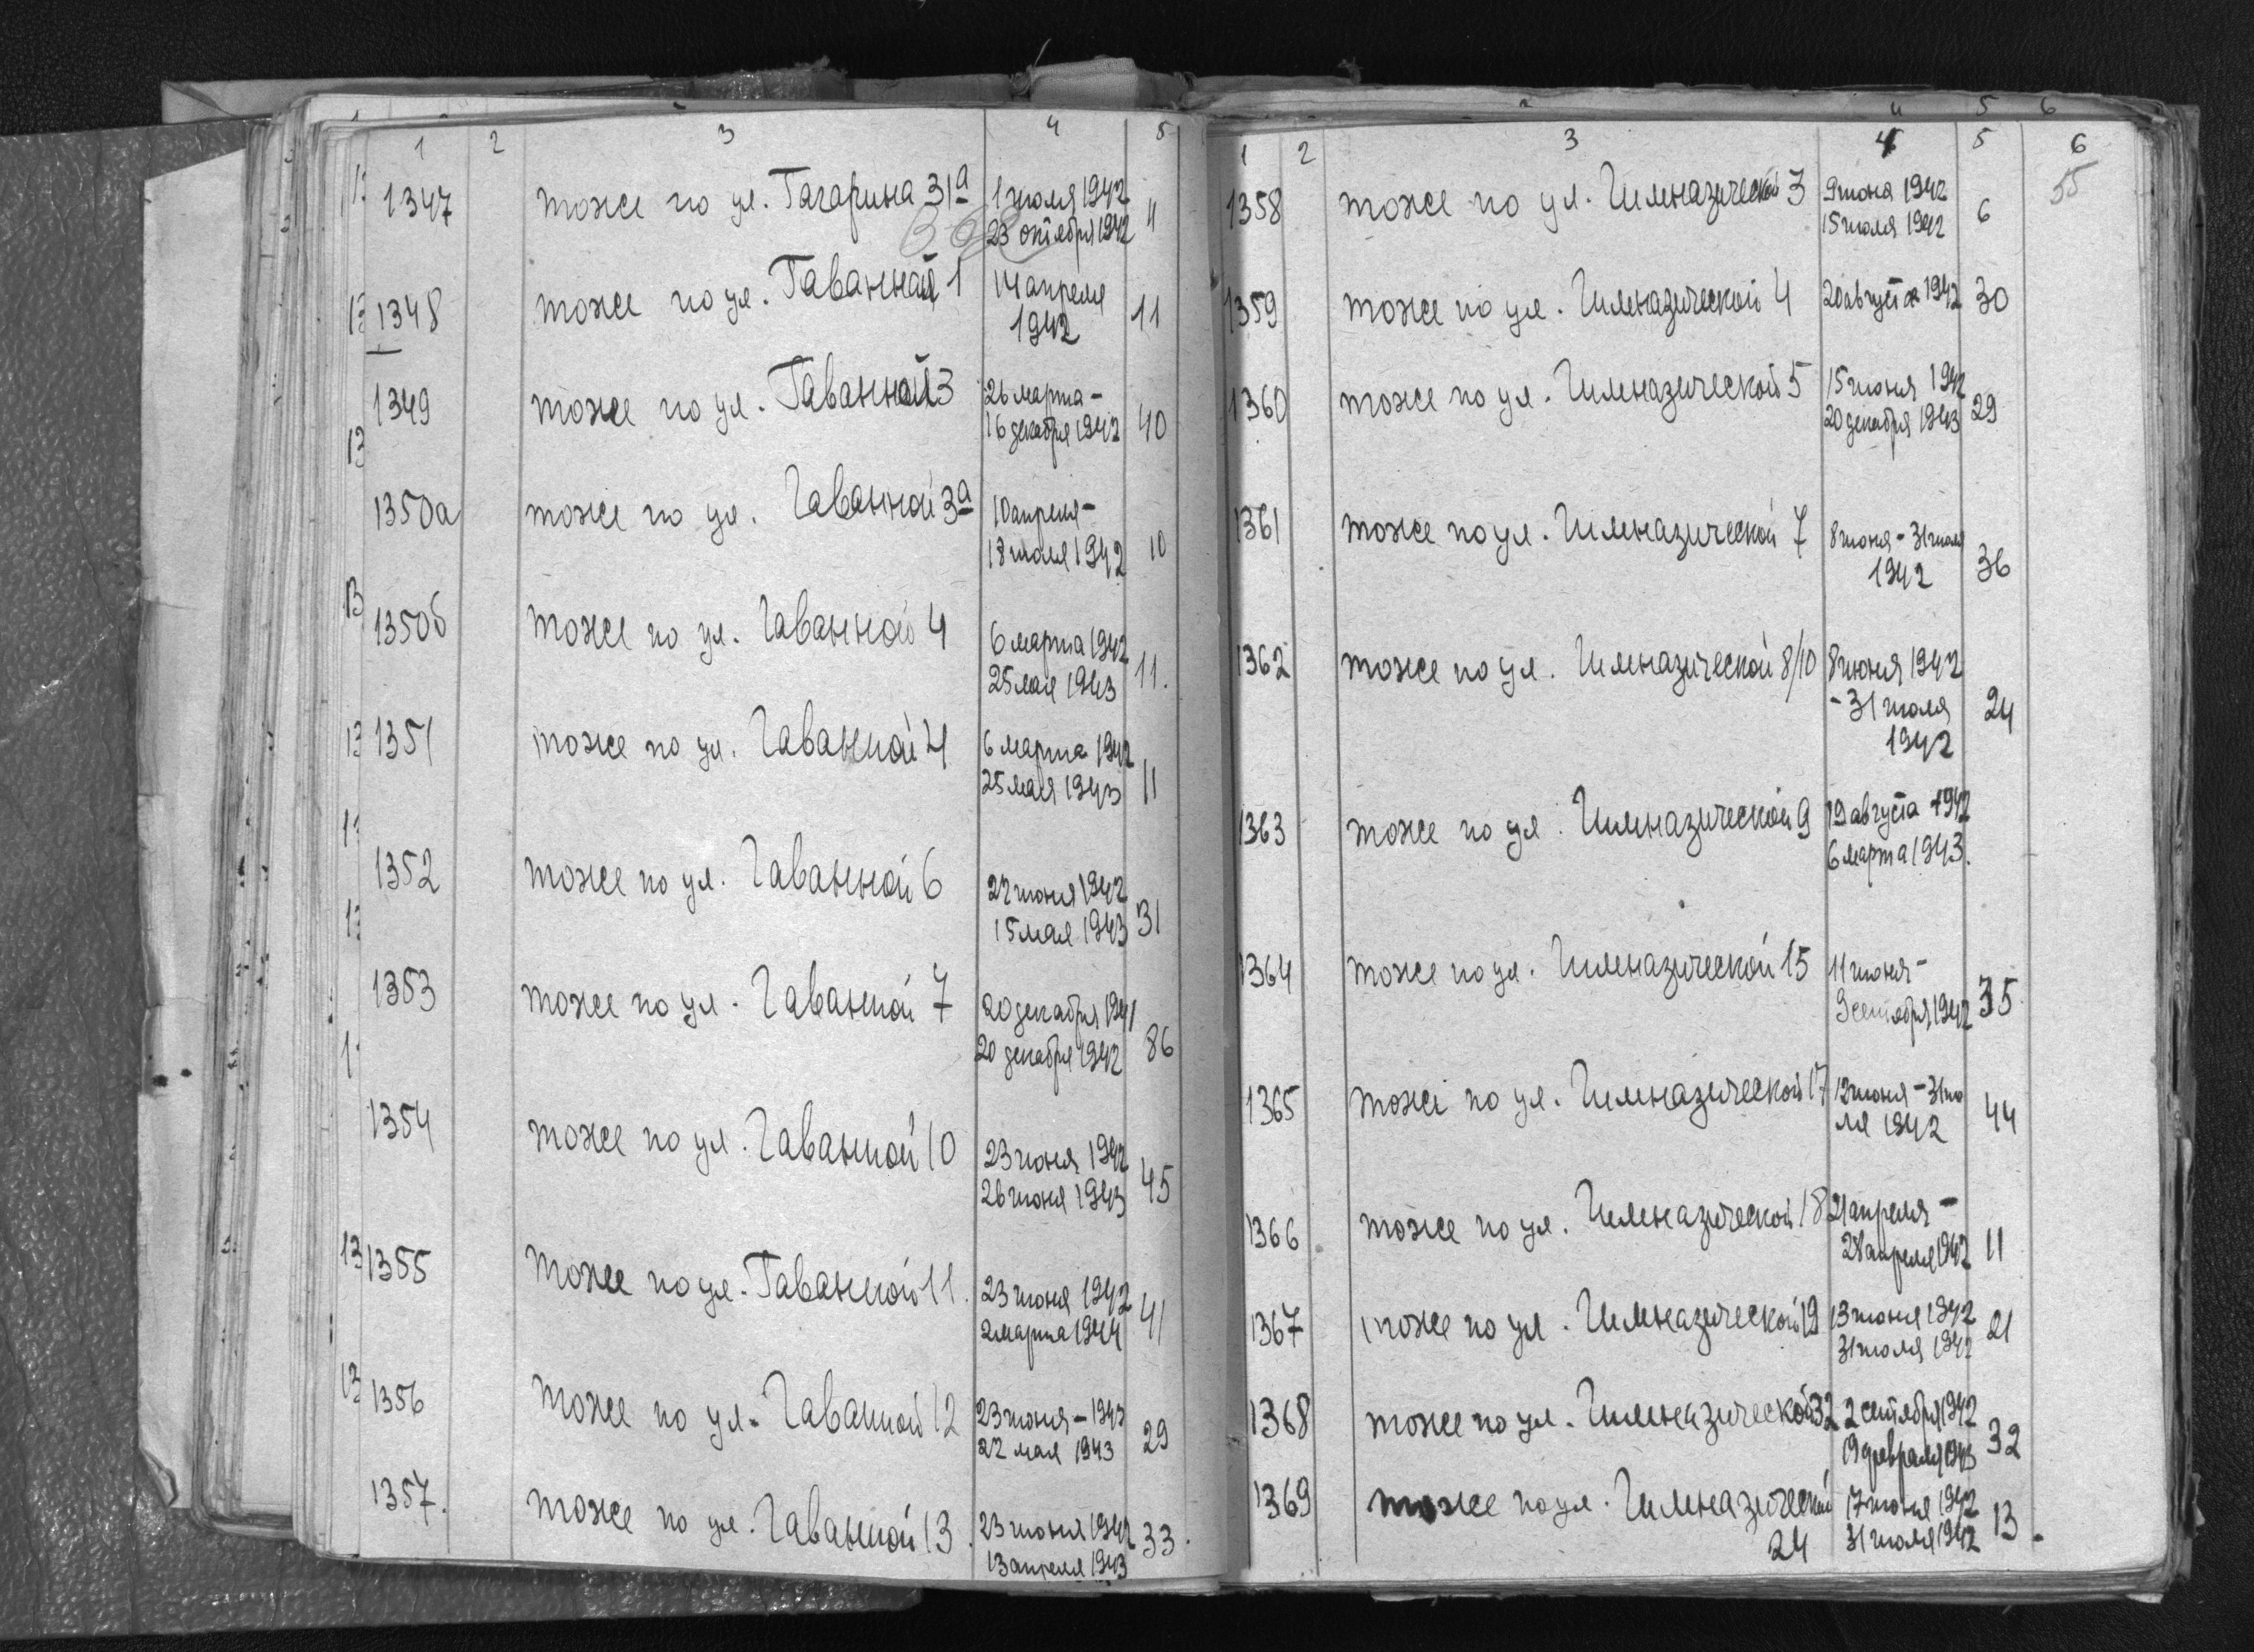 1 2 3 4 5
1347 тоже по ул. Гагарина 31а 1 июля 1942 11
23 октября 1942
1348 тоже по ул. Гаванной 1 14 апреля 11
1942
1349 тоже по ул. Гаванной 3 26 марта -
16 декабря 1942 40
1350а тоже по ул. Гаванной 3а 10 апреля -
18 июля 1942 10
1350б тоже по ул. Гаванной 4 6 марта 1942
25 мая 1943 11.
1351 тоже по ул. Гаванной 4 6 марта 1942
25 мая 1943 11
1352 тоже по ул. Гаванной 6 22 июня 1942
15 мая 1943 31
1353 тоже по ул. Гаванной 7 20 декабря 1941
20 декабря 1942 86
1354 тоже по ул. Гаванной 10 23 июня 1942
26 июня 1943 45
1355 тоже по ул. Гаванной 11. 23 июня 1942 41
2 марта 1944
1356 тоже по ул. Гаванной 12 23 июня -
22 мая 1943 29
1357. тоже по ул. Гаванной 13. 23 июня 1942 33.
13 апреля 1943
1 2 3 4 5 6
55
1358 тоже по ул. Гимназической 3 9 июня 1942 6
15 июля 1942
1359 тоже по ул. Гимназической 4 20 августа 1942 30
1360 тоже по ул. Гимназической 5 15 июня 1942 29
20 декабря 1943
1361 тоже по ул. Гимназической 7 8 июня - 31 июля
1942 36
1362 тоже по ул. Гимназической 8/10 8 июня 1942
- 31 июля 24
1942
1363 тоже по ул. Гимназической 9 19 августа 1942
6 марта 1943.
1364 тоже по ул. Гимназической 15 11 июня -
9 сентября 1942 35
1365 тоже по ул. Гимназической 17 12 июня - 31 ию
ля 1942 44
1366 тоже по ул. Гимназической 18 21 апреля -
28 апреля 1942 11
1367 тоже по ул. Гимназической 19 13 июня 1942 21
31 июля 1942
1368 тоже по ул. Гимназической 32 2 сентября 1942 32
19 февраля 1943
1369 тоже по ул. Гимназической 17 июня 1942 13.
24 31 июля 1942